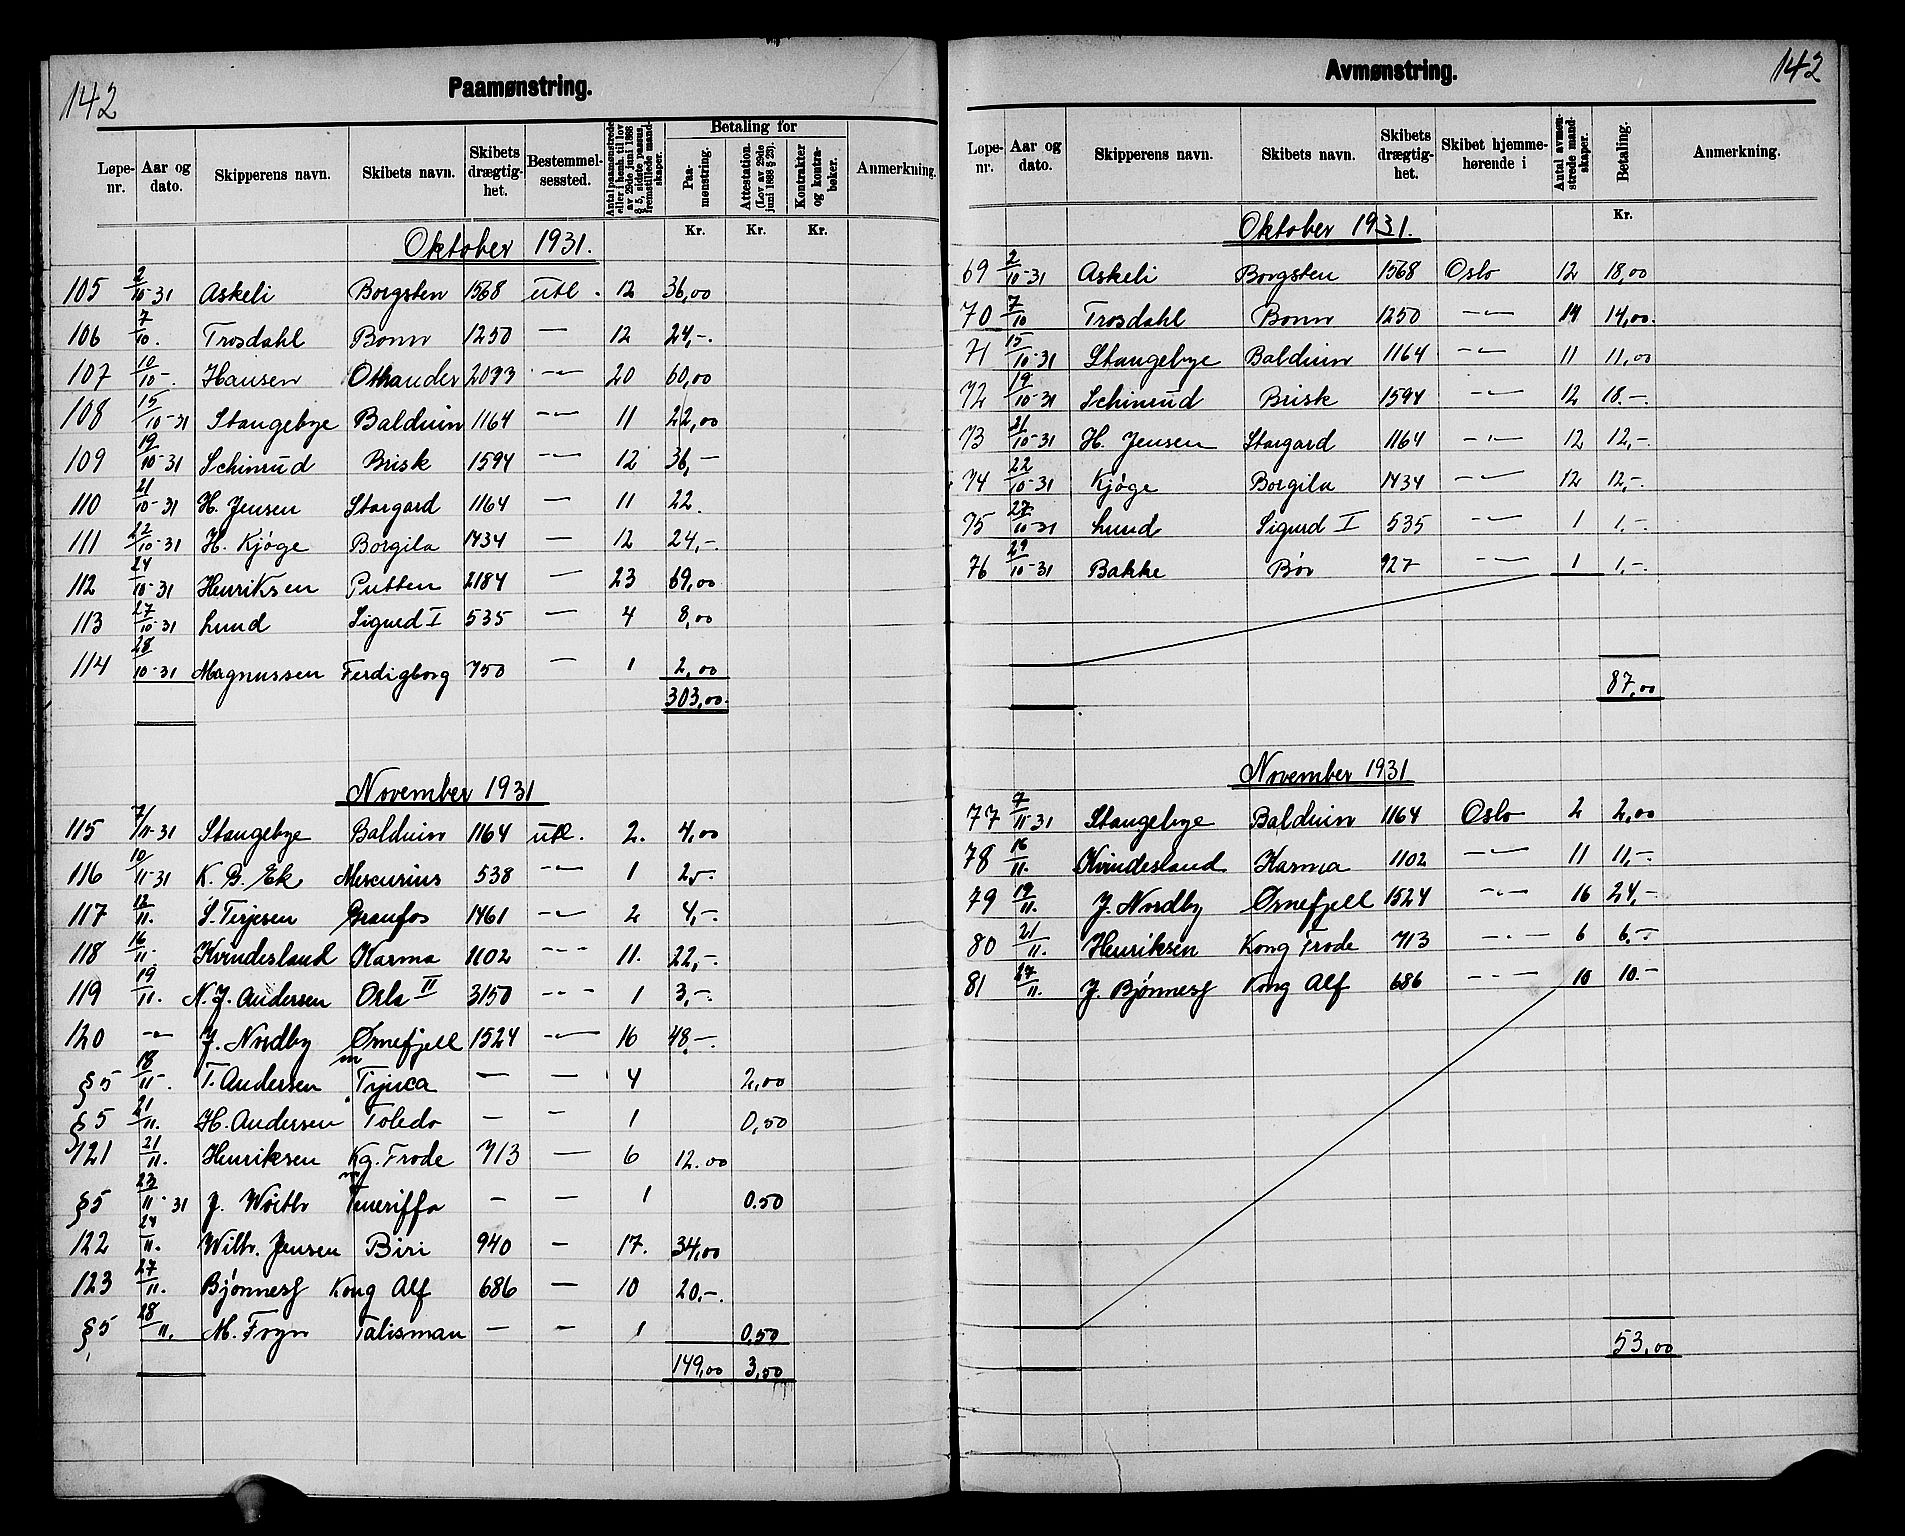 142
Paamønstring.
Løpe-nr. | Aar og dato. | Skipperens navn. | Skibets navn. | Skibets drægtig-het. | Bestemmel-sessted. | Antal paamønstrede eller i henh. til lov av 29de juni 1888 § 5, sidste passus, fremstillede mand-skaper. | Betaling for | Paa-mønstring. | Attestation. (Lov av 29de juni 1888 § 23). | Kontrakter og kontra-bøker. | Anmerkning.
Kr. | Kr. | Kr.
Oktober 1931.
105 2/10-31 Askeli Borgsten 1568 utl. 12 36,00
106 7/10. Trosdahl Bonn 1250 — 12 24,-.
107 10/10-. Hansen Othander 2093 -"- 20 60,00
108 15/10-31 Stangebye Balduin 1164 -"- 11 22,00
109 19/10-31 Schinrud Brisk 1594 -"- 12 36,-
110 21/10-31 H. Jensen Stargard 1164 — 11 22.
111 22/10-31 H. Kjøge Borgila 1434 — 12 24,-.
112 24/10-31 Henriksen Putten 2184 — 23 69,00
113 27/10-31 Lund Sigurd I 535 — 4 8,00
114 28/10-31 Magnussen Ferdigborg 750 — 1 2,00
303,00.
November 1931
115 7/11-31 Stangebye Balduin 1164 utl. 2. 4,00
116 10/11-31 K. B. Ek Mercurius 538 — 1 2,-.
117 12/11. S. Terjesen Granfos 1461 -"- 2 4,-.
118 16/11. Kvindesland Karma 1102 -"- 11. 22,-.
119 19/11. N. J. Andersen Oslo II 3150 -"- 1 3,-.
120 -"- J. Nordby Ørnefjell 1524 -"- 16 48,-.
§5 18/11-. T. Andersen m Tijuca — — 4 2,00
§5 21/11. H. Andersen " Toledo — — 1 0,50
121 21/11. Henriksen Kg. Frode 713 — 6 12.00
§5 23/11-31 J. Woith m Teneriffa — — 1 0.50
122 24/11. Wilh. Jensen Biri 940 — 17. 34,00
123 27/11. Bjønnesf Kong Alf 686 — 10 20,-.
§5 28/11. M. Foyn Talisman — — 1 0.50
149,00 3,50
142
Avmønstring.
Løpe-nr. | Aar og dato. | Skipperens navn. | Skibets navn. | Skibets drægtig-het. | Skibet hjemme-hørende i | Antal avmøn-strede mand-skaper. | Betaling. | Anmerkning.
Kr.
Oktober 1931.
69 2/10-31 Askeli Borgsten 1568 Oslo 12 18,00
70 7/10 Trosdahl Bonn 1250 -"- 14 14,00.
71 15/10-31 Stangebye Balduin 1164 -"- 11 11,00
72 19/10-31 Schinrud Brisk 1594 -"- 12 18.-.
73 21/10-31 H. Jensen Stargard 1164 -"- 12 12,-.
74 22/10-31 Kjøge Borgila 1434 -"- 12 12,-.
75 27/10-31 Lund Sigurd I 535 -"- 1 1,-.
76 29/10-31 Bakke Bør 927 -"- 1 1,-.
87,00
November 1931
77 7/11-31 Stangebye Balduin 1164 Oslo 2 2,00
78 16/11. Kvindesland Karma 1102 -"- 11 11,-.
79 19/11. J. Nordby Ørnefjell 1524 -"- 16 24,-
80 21/11. Henriksen Kong Frode 713 -"- 6 6,-
81 27/11. J. Bjønnesf Kong Alf 686 -"- 10 10.-
53,00